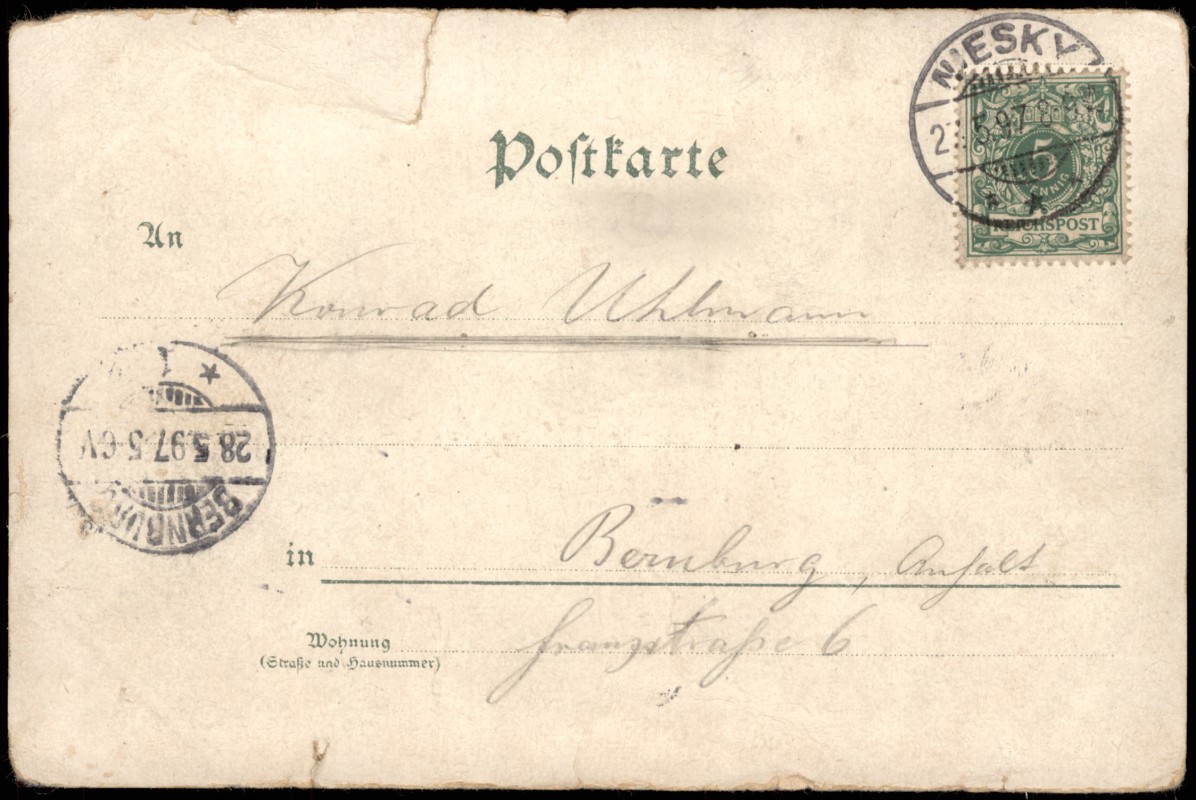 Postkarte
NIESKY
5.97 8
5
PFENNIG
REICHSPOST
An
Konrad Uhlmann
28.5.97.5-6V
BERNBURG
in Bernburg, Anhalt
Wohnung
(Straße und Hausnummer)
Franzstraße 6